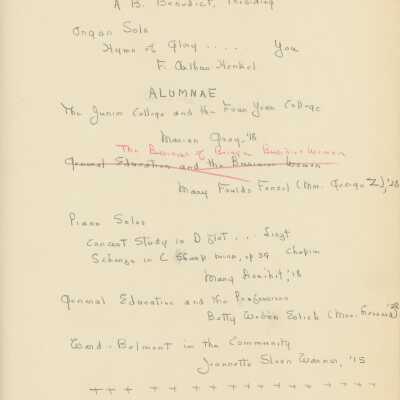 A B. Benedict, Presiding
Organ Solo
Hymn of Glory .... Yon
F. Arthur Henkel
ALUMNAE
The Junior College and the Four Year College
Marian Gray, '18
The Business of Being a Business Woman
General Education and the Business Woman
Mary Foulds (Mrs. George Z), '18
Piano Solos
Concert Study in D flat ... Liszt
Scherzo in C Sharp minor, op 39 Chopin
Mary '18
General Education and the Professions
Betty (Mrs.
Ward-Belmont in the Community
Jeannette Sloan Warner, '15
+++ +++++++++++++++